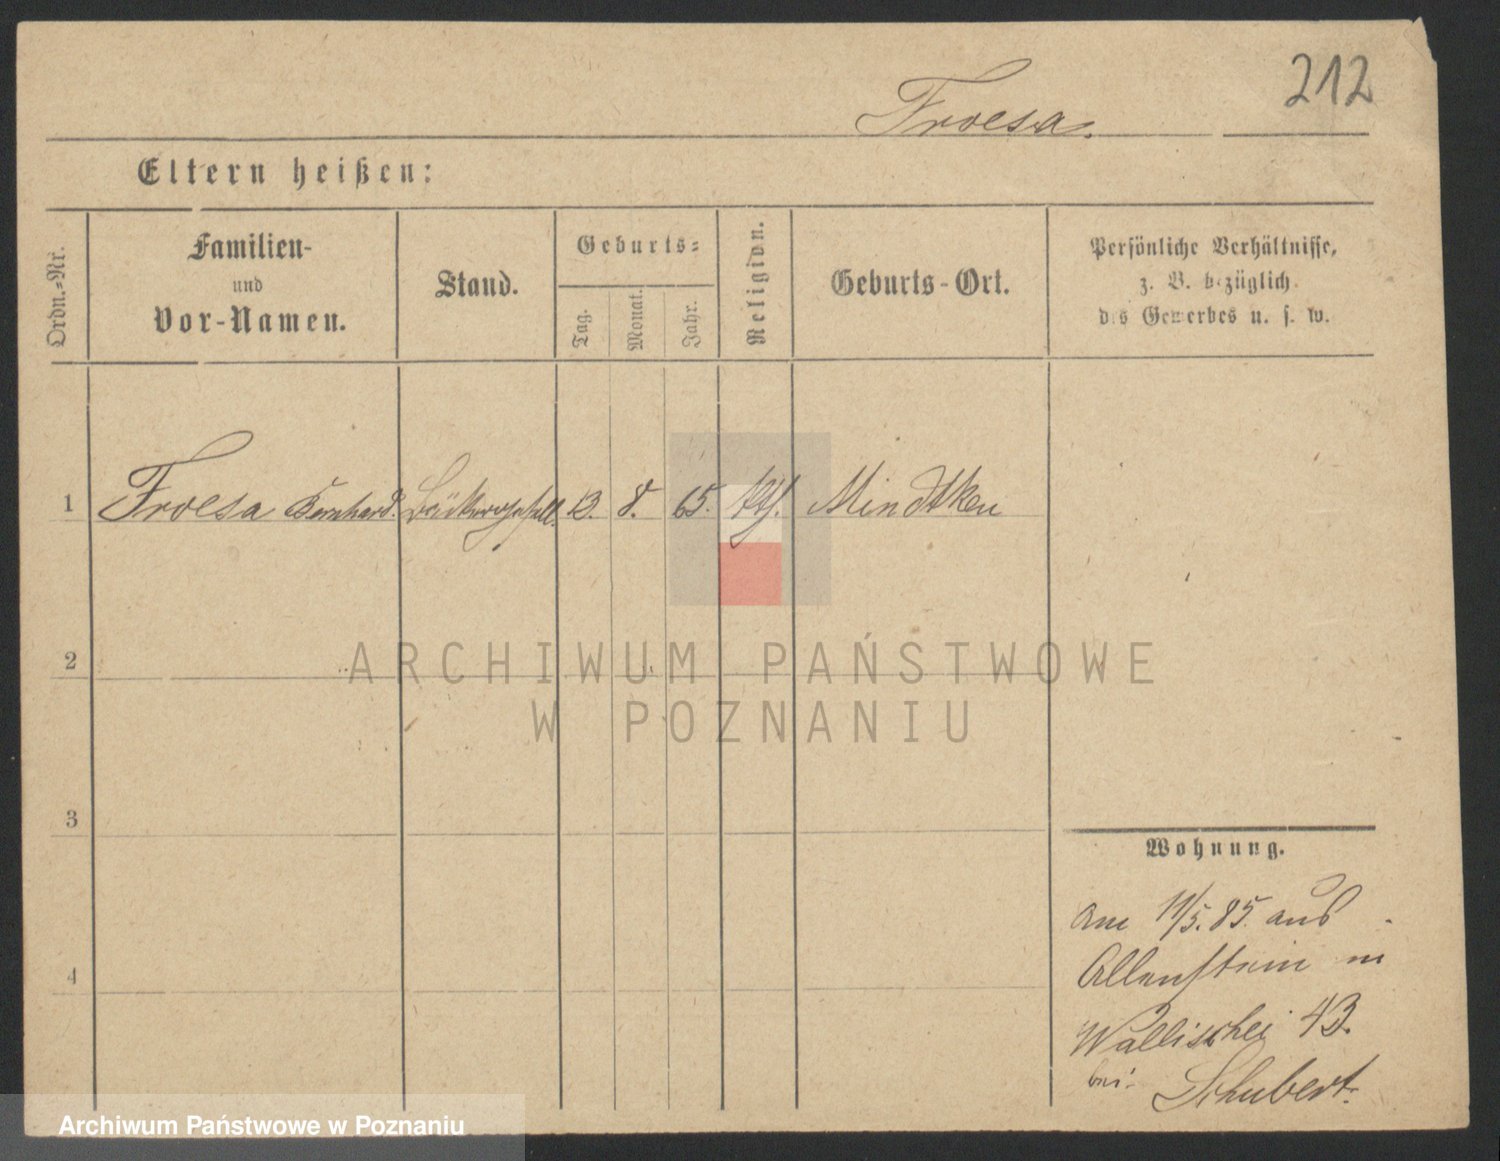 212
Froesa.
Eltern heißen:
Ordn.-Nr.
Familien-
und
Vor-Namen.
Stand.
Geburts-
Tag.
Monat.
Jahr.
Religion.
Geburts-Ort.
Persönliche Verhältnisse,
z. B. bezüglich
des Gewerbes u. s. w.
1 Froesa Bernhard. Bäckergesell. 13. 8. 65. kth. Mindtken
2
3
4
Wohnung.
Am 11/5. 85. aus
Allenstein in
Wallischei 43.
bei Schubert.
ARCHIWUM PAŃSTWOWE
W POZNANIU
Archiwum Państwowe w Poznaniu